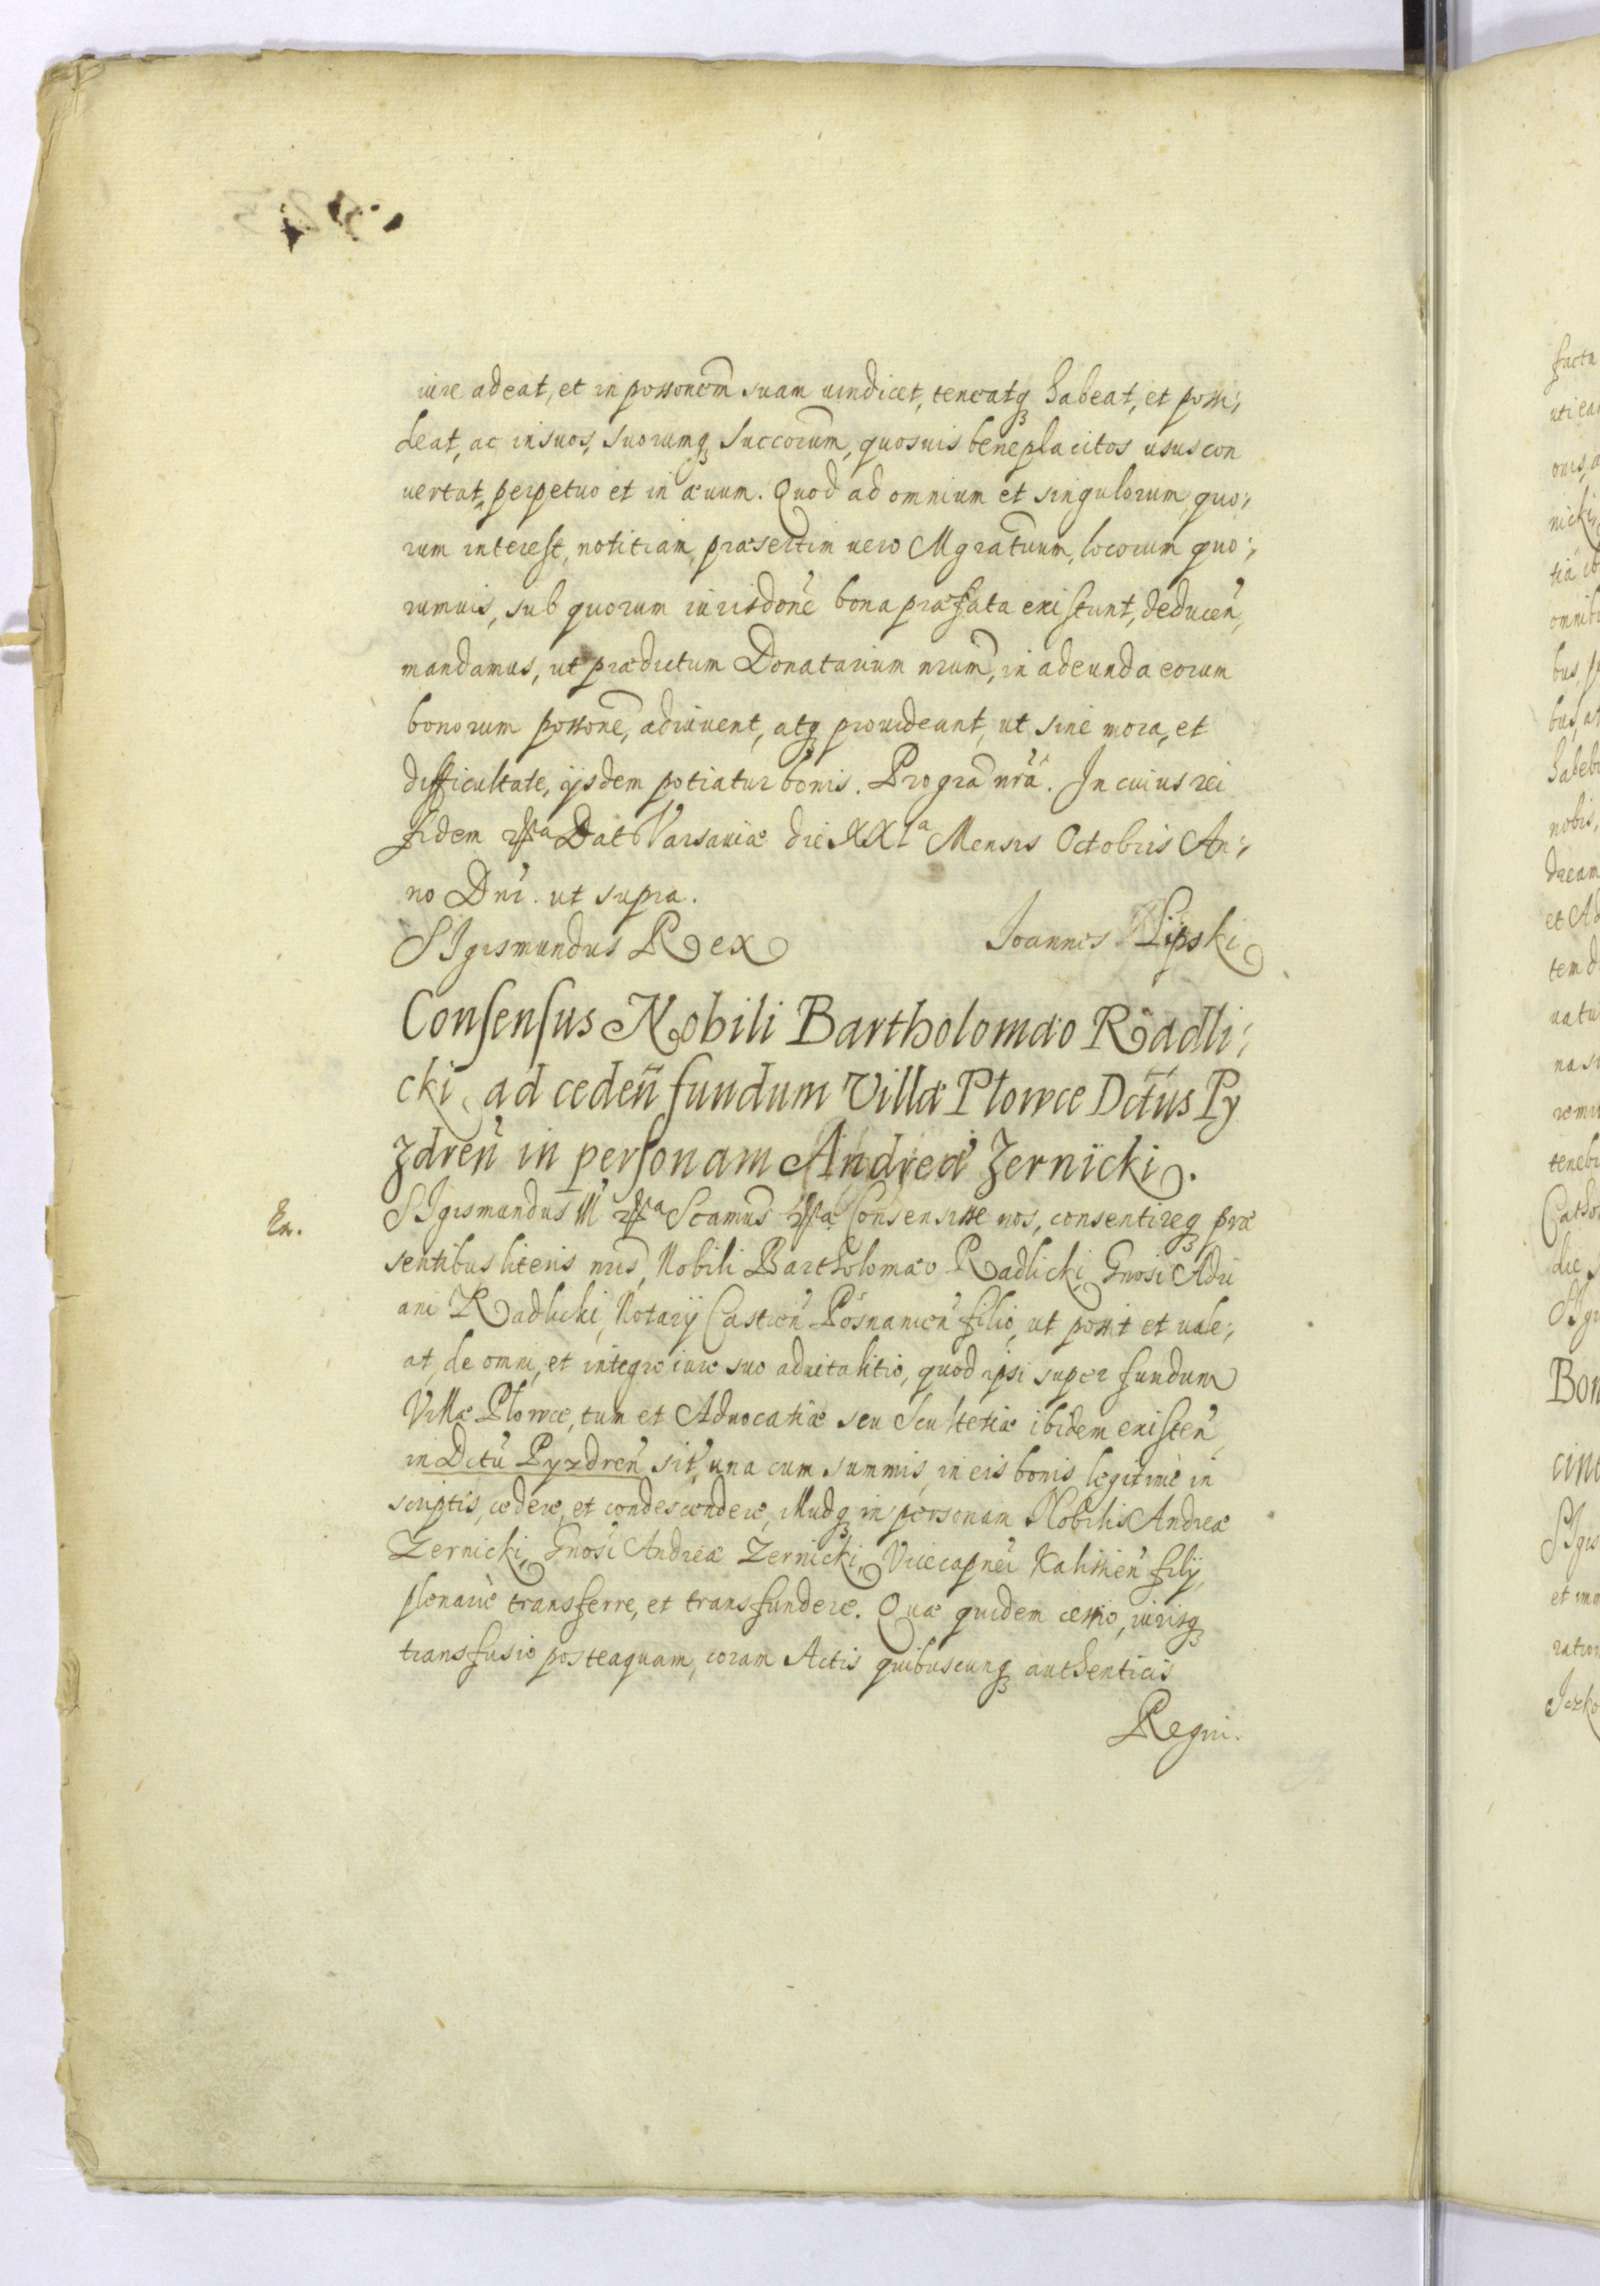 iure adeat, et in possonem suam vindicet, teneatq habeat, et possi:,
deat, ac in suos, suorumq Succorum, quosuis beneplacitos usus con
uertat, perpetuo et in æuum. Quod ad omnium et singulorum, quo:,
rum interest, notitiam, præsertim uero Mgratuum, locorum quo:,
rumuis, sub quorum iurisdone bona præfata existunt, deducen,
mandamus, ut prædictum Donatarium nrum, in adeunda eorum
bonorum possone, adiuuent, atq prouideant, ut sine mora, et
difficultate, ijsdem potiatur bonis. Pro gra nra. In cuius rei
fidem Dat Varsauiæ die XXIa Mensis Octobris An:,
no Dni. ut supra.
SIgismundus Rex Joannes Lipski
Consensus Nobili Bartholomæo Radli:
cki, ad ceden fundum Villæ Plowce Dctus Py
zdren in personam Andreæ Zernicki.
Ex.
SIgismundus III Scamus Consensisse nos, consentireq præ
sentibus literis nris, Nobili Bartholomæo Radlicki, Gnosi Adri
ani Radlicki, Notarij Castren Posnanien filio, ut possit et uale:,
at, de omni, et integro iure suo aduitalitio, quod ipsi super fundum
Villæ Plowce, tum et Aduocatiæ seu Scultetiæ ibidem existen,
in Dctu Pyzdren sit, una cum summis, in eis bonis legitimè in
scriptis, cedere, et condescendere, illudq in personam Nobilis Andreæ
Zernicki, Gnosi Andreæ Zernicki, Vicecapnei Kalissien filij,
plenariè transferre, et transfundere. Quæ quidem cessio, iurisq
transfusio posteaquam, coram Actis quibuscunq authenticis
Regni.